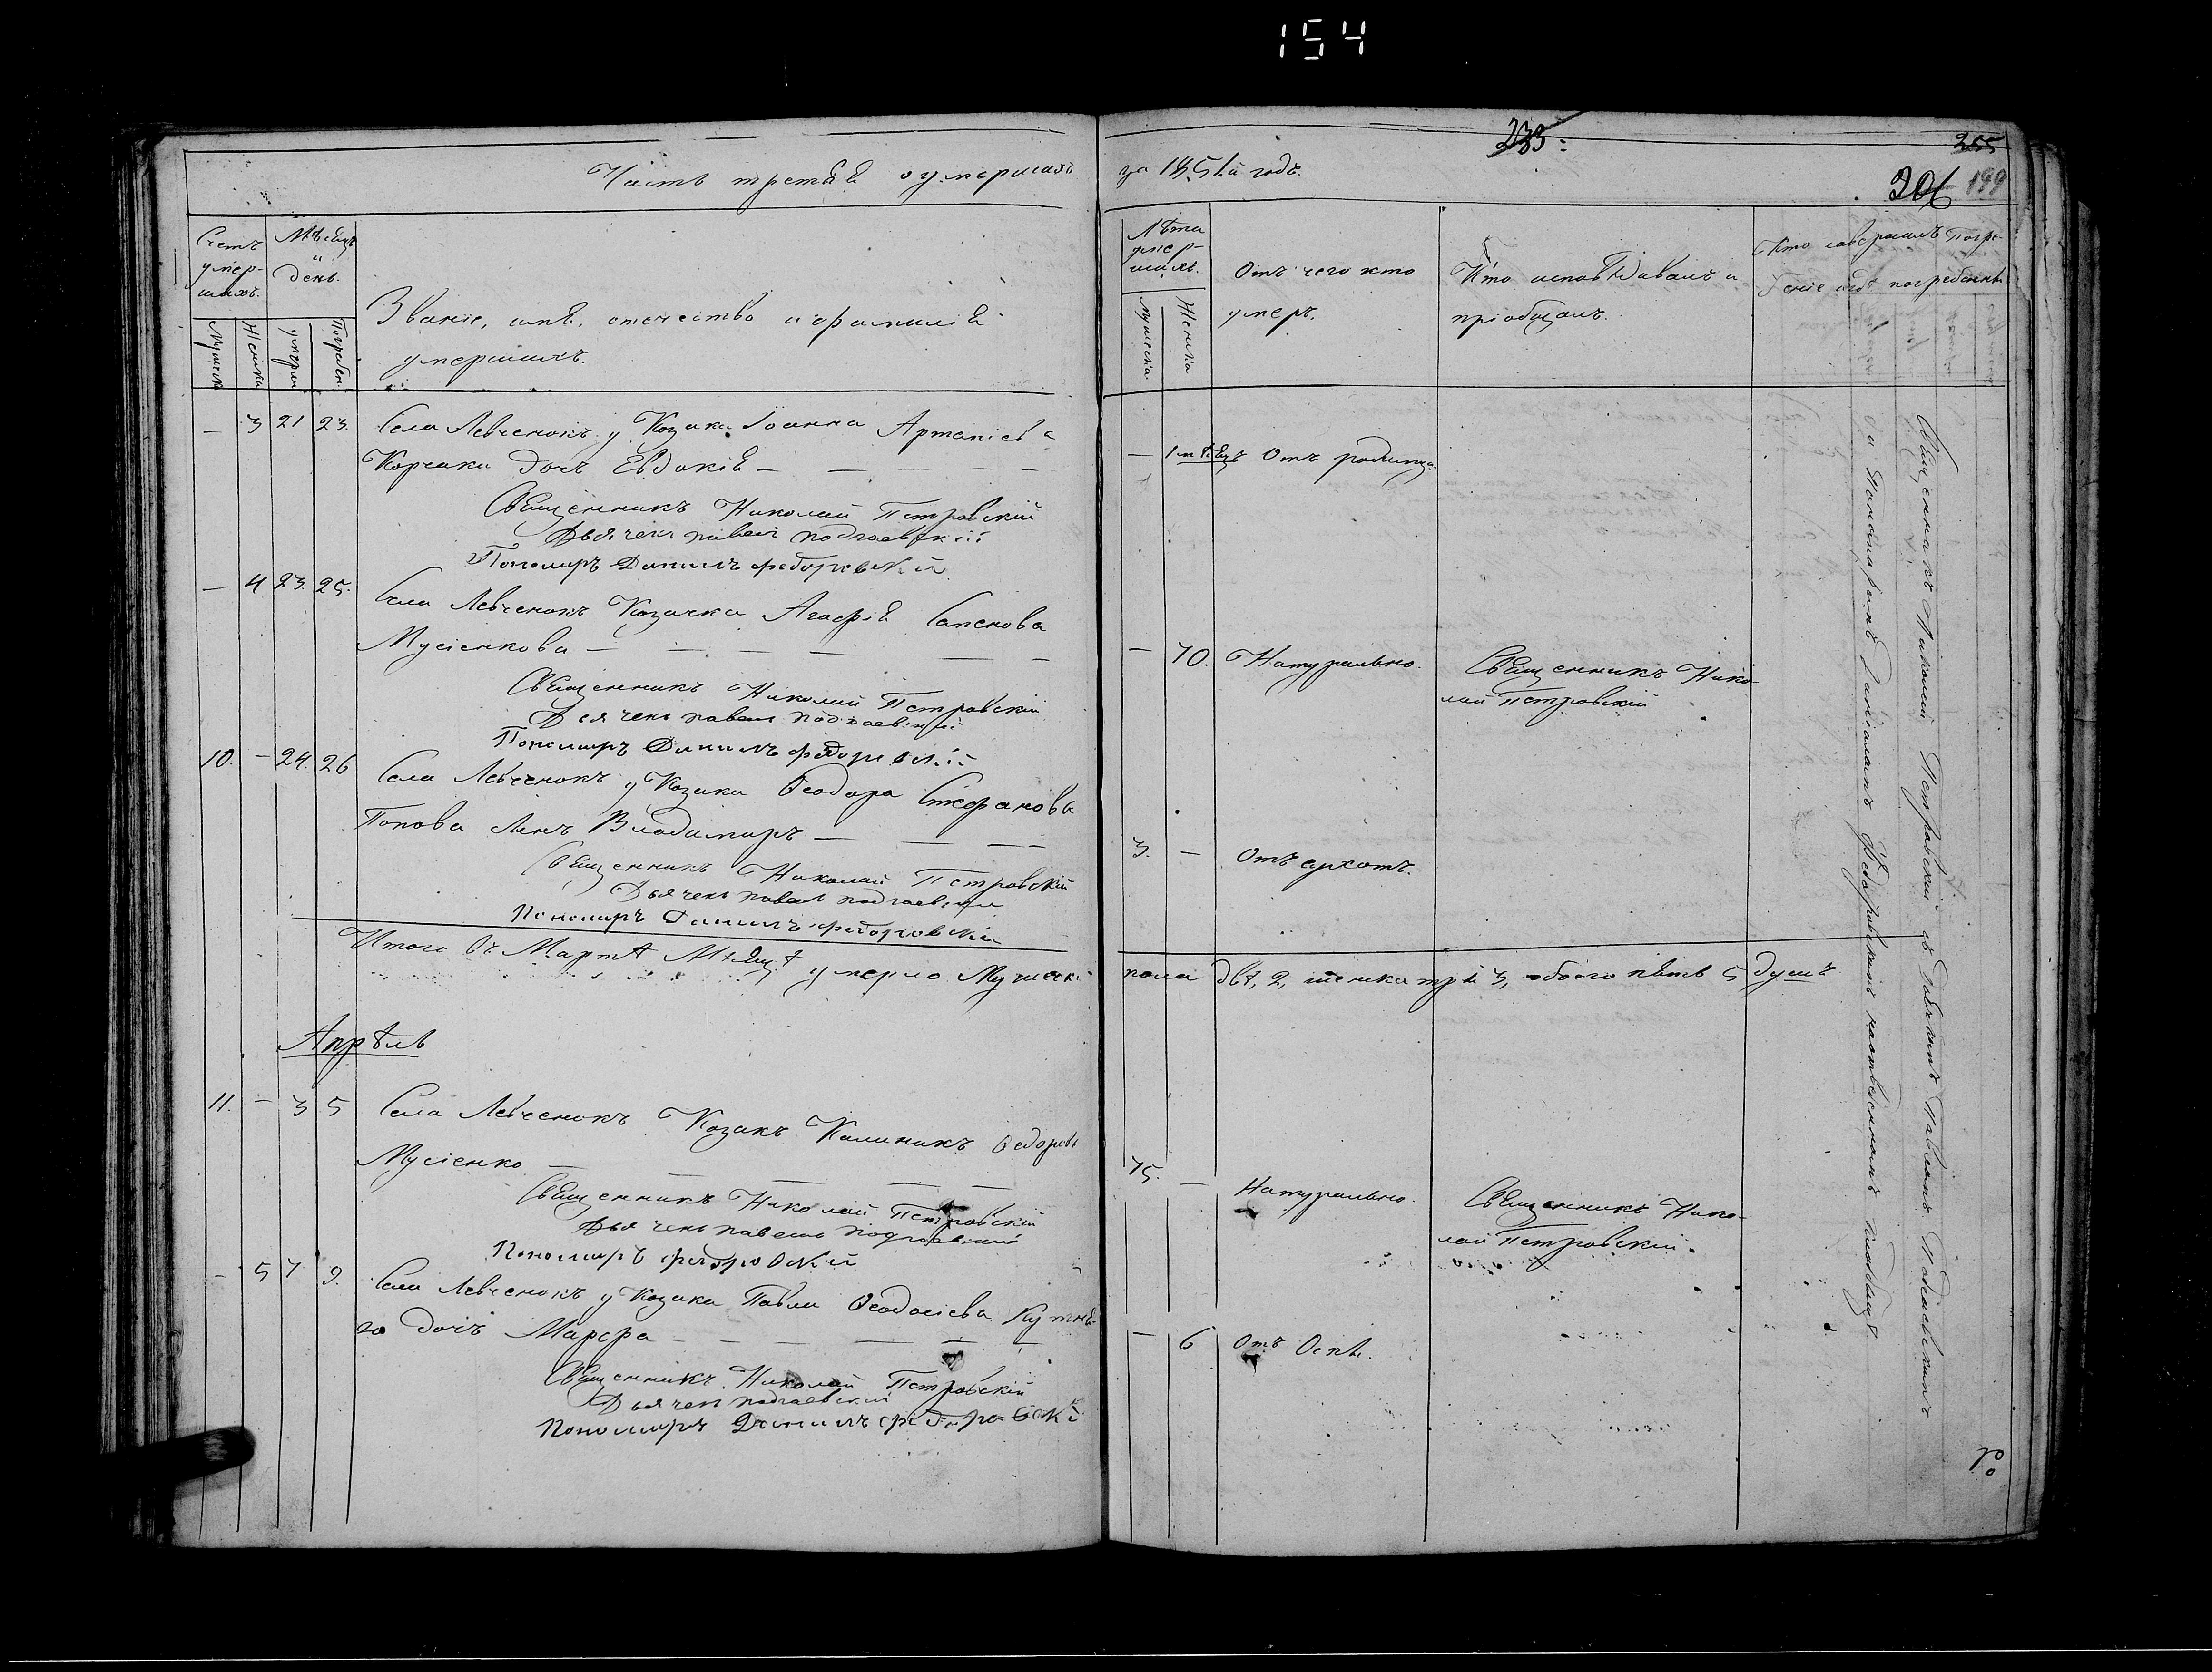 154
Часть третья о умершихъ
Счетъ умер-шихъ.
Мѣсяцъ и день.
Мужеска
Женска
умерли
Погребен.
Званіе, имя, отечество и фамилія
умершихъ.
— 3 21 23. Села Левченокъ у Козака Іоанна Артапіева
Корсака дочь Евдокія — — — —
Священникъ Николай Петровскій
Дьячекъ павелъ подгаевскій
Пономаръ Данилъ федоровскій
— 4 23. 25. Села Левченокъ Козачка Агафія
Мусіенкова — — — — — —
Священникъ Николай Петровскій
Дьячекъ павелъ подгаевскій
Пономаръ Данилъ федоровскій
10. — 24. 26 Села Левченокъ у Козака Ѳеодора Стефанова
Попова сынъ Владимиръ — — — —
Священникъ Николай Петровскій
Дьячекъ павелъ подгаевскій
Пономаръ Данилъ федоровскій
Итого въ Мартѣ Мѣсяцѣ умерло Мужеска
Апрѣль
11. — 3 5 Села Левченокъ Козакъ Калиникъ Ѳедоровъ
Мусіенко — — — — —
Священникъ Николай Петровскій
Дьячекъ павелъ подгаевскій
Пономаръ федоровскій
— 5 7 9. Села Левченокъ у Козака Павла Ѳеодосіева
го дочь Марфа — — — — — —
Священникъ Николай Петровскій
Дьячекъ подгаевскій
Пономаръ Данилъ федоровскі
за 1851й годъ.
233:
255
206 199
Лѣта умер-шихъ.
Мужеска
Женска
Отъ чего кто
умеръ.
Кто исповѣдывалъ и
пріобщалъ.
Кто совершалъ погре-
беніе и гдѣ погребены
— 1 мѣсяцъ Отъ родимца.
— 70. Натурально. Священникъ Нико-
лай Петровскій
3. — Отъ сухотъ.
пола два, 2, женска три 3, обоего пять 5 душъ
75. — Натурально. Священникъ Нико-
лай Петровскій.
— 6 Отъ Оспы.
Священникъ Николай Петровскій съ Дьячкомъ Павломъ Подгаевскимъ
и Пономаремъ Даніиломъ Федоровскимъ на кладбищѣ.